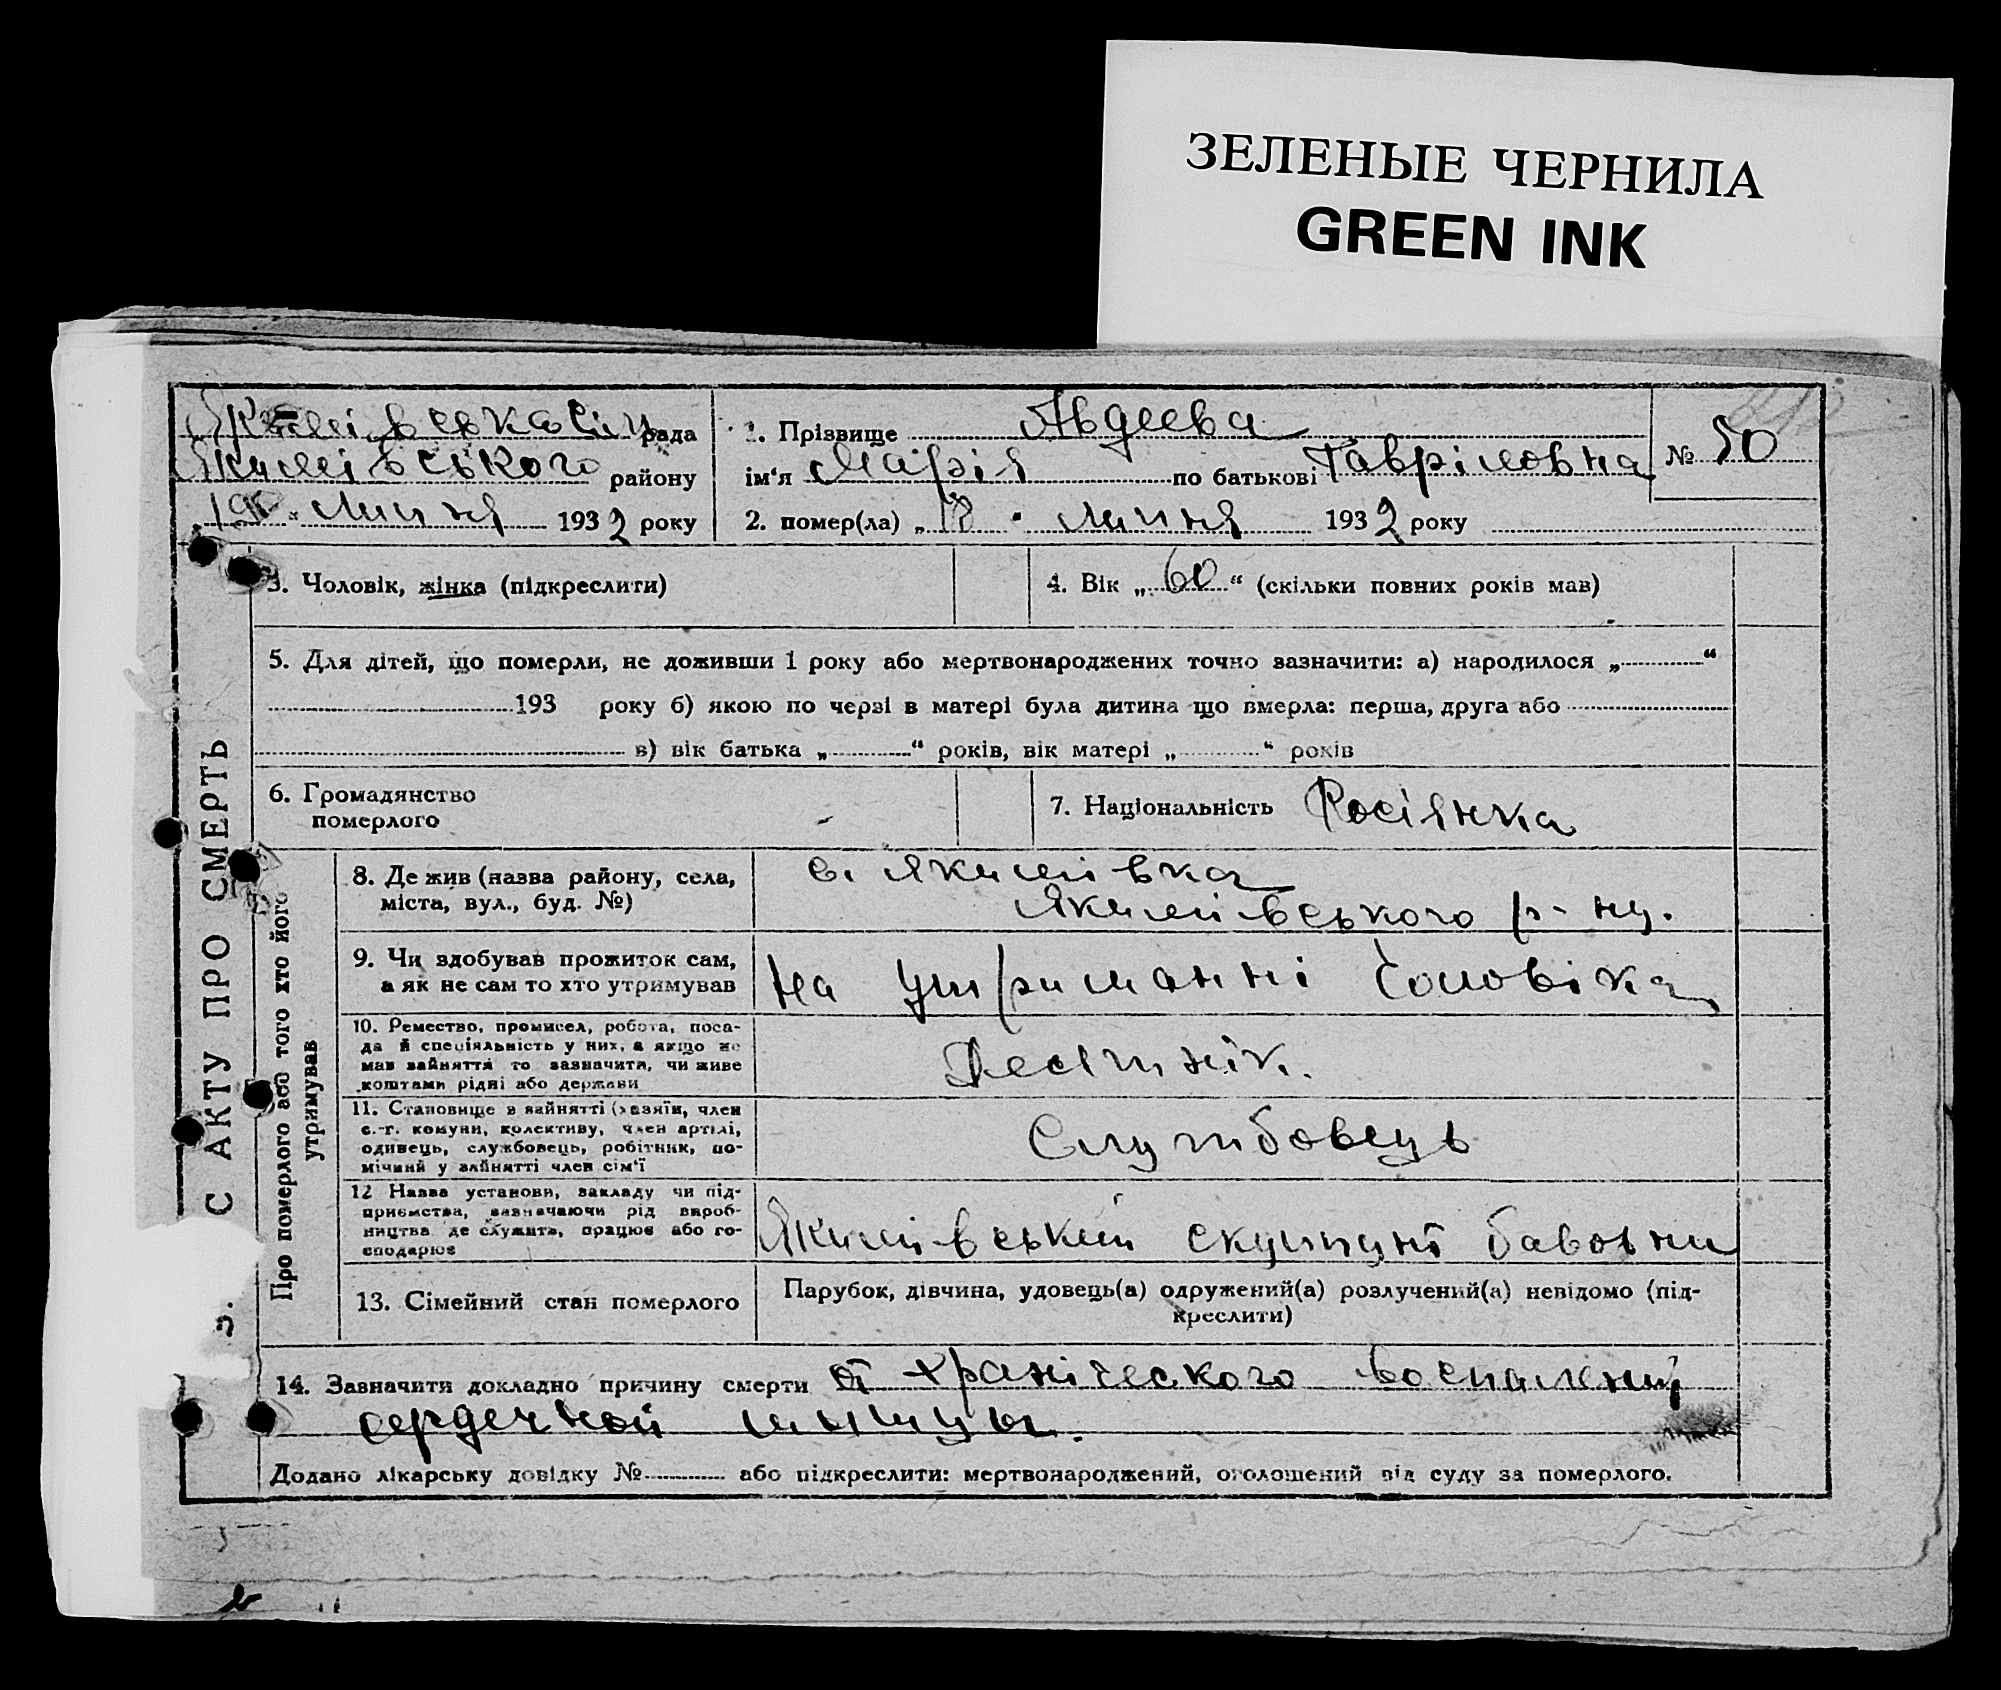 ЗЕЛЕНЫЕ ЧЕРНИЛА
GREEN INK
Якимівська сіл рада
Якимівського району
„19“ Липня 1932 року
1. Прізвище Авдеева
ім'я Марія по батькові Гавріловна
№ 50
2. помер(ла) „18 “ липня 1932 року
3. Чоловік, жінка (підкреслити)
4. Вік „60“ (скільки повних років мав)
5. Для дітей, що померли, не доживши 1 року або мертвонароджених точно зазначити: а) народилося „ “
193 року б) якою по черзі в матері була дитина що вмерла: перша, друга або
в) вік батька „ “ років, вік матері „ “ років
6. Громадянство
померлого
7. Національність Росіянка
8. Де жив (назва району, села,
міста, вул., буд. №)
с. Якимівка
Якимівського р-ну.
9. Чи здобував прожиток сам,
а як не сам то хто утримував
На утриманні чоловіка
10. Ремество, промисел, робота, поса-
да й спеціяльність у них, а якщо не
мав зайняття то зазначити, чи живе
коштами рідні або держави
Десятнік.
11. Становище в зайнятті (хазяїн, член
с.-г. комуни, колективу, член артілі,
одинець, службовець, робітник, по-
мічний у зайнятті член сім'ї
Службовець
12 Назва установи, закладу чи під-
приємства, зазначаючи рід вироб-
ництва де служить, працює або го-
сподарює
Якимівський скуппункт бавовни
13. Сімейний стан померлого
Парубок, дівчина, удовець(а) одружений(а) розлучений(а) невідомо (під-
креслити)
14. Зазначити докладно причину смерти от хранического воспаления
сердечной мышцы.
Додано лікарську довідку № або підкреслити: мертвонароджений, оголошений від суду за померлого.
С АКТУ ПРО СМЕРТЬ
Про померлого або того хто його
утримував